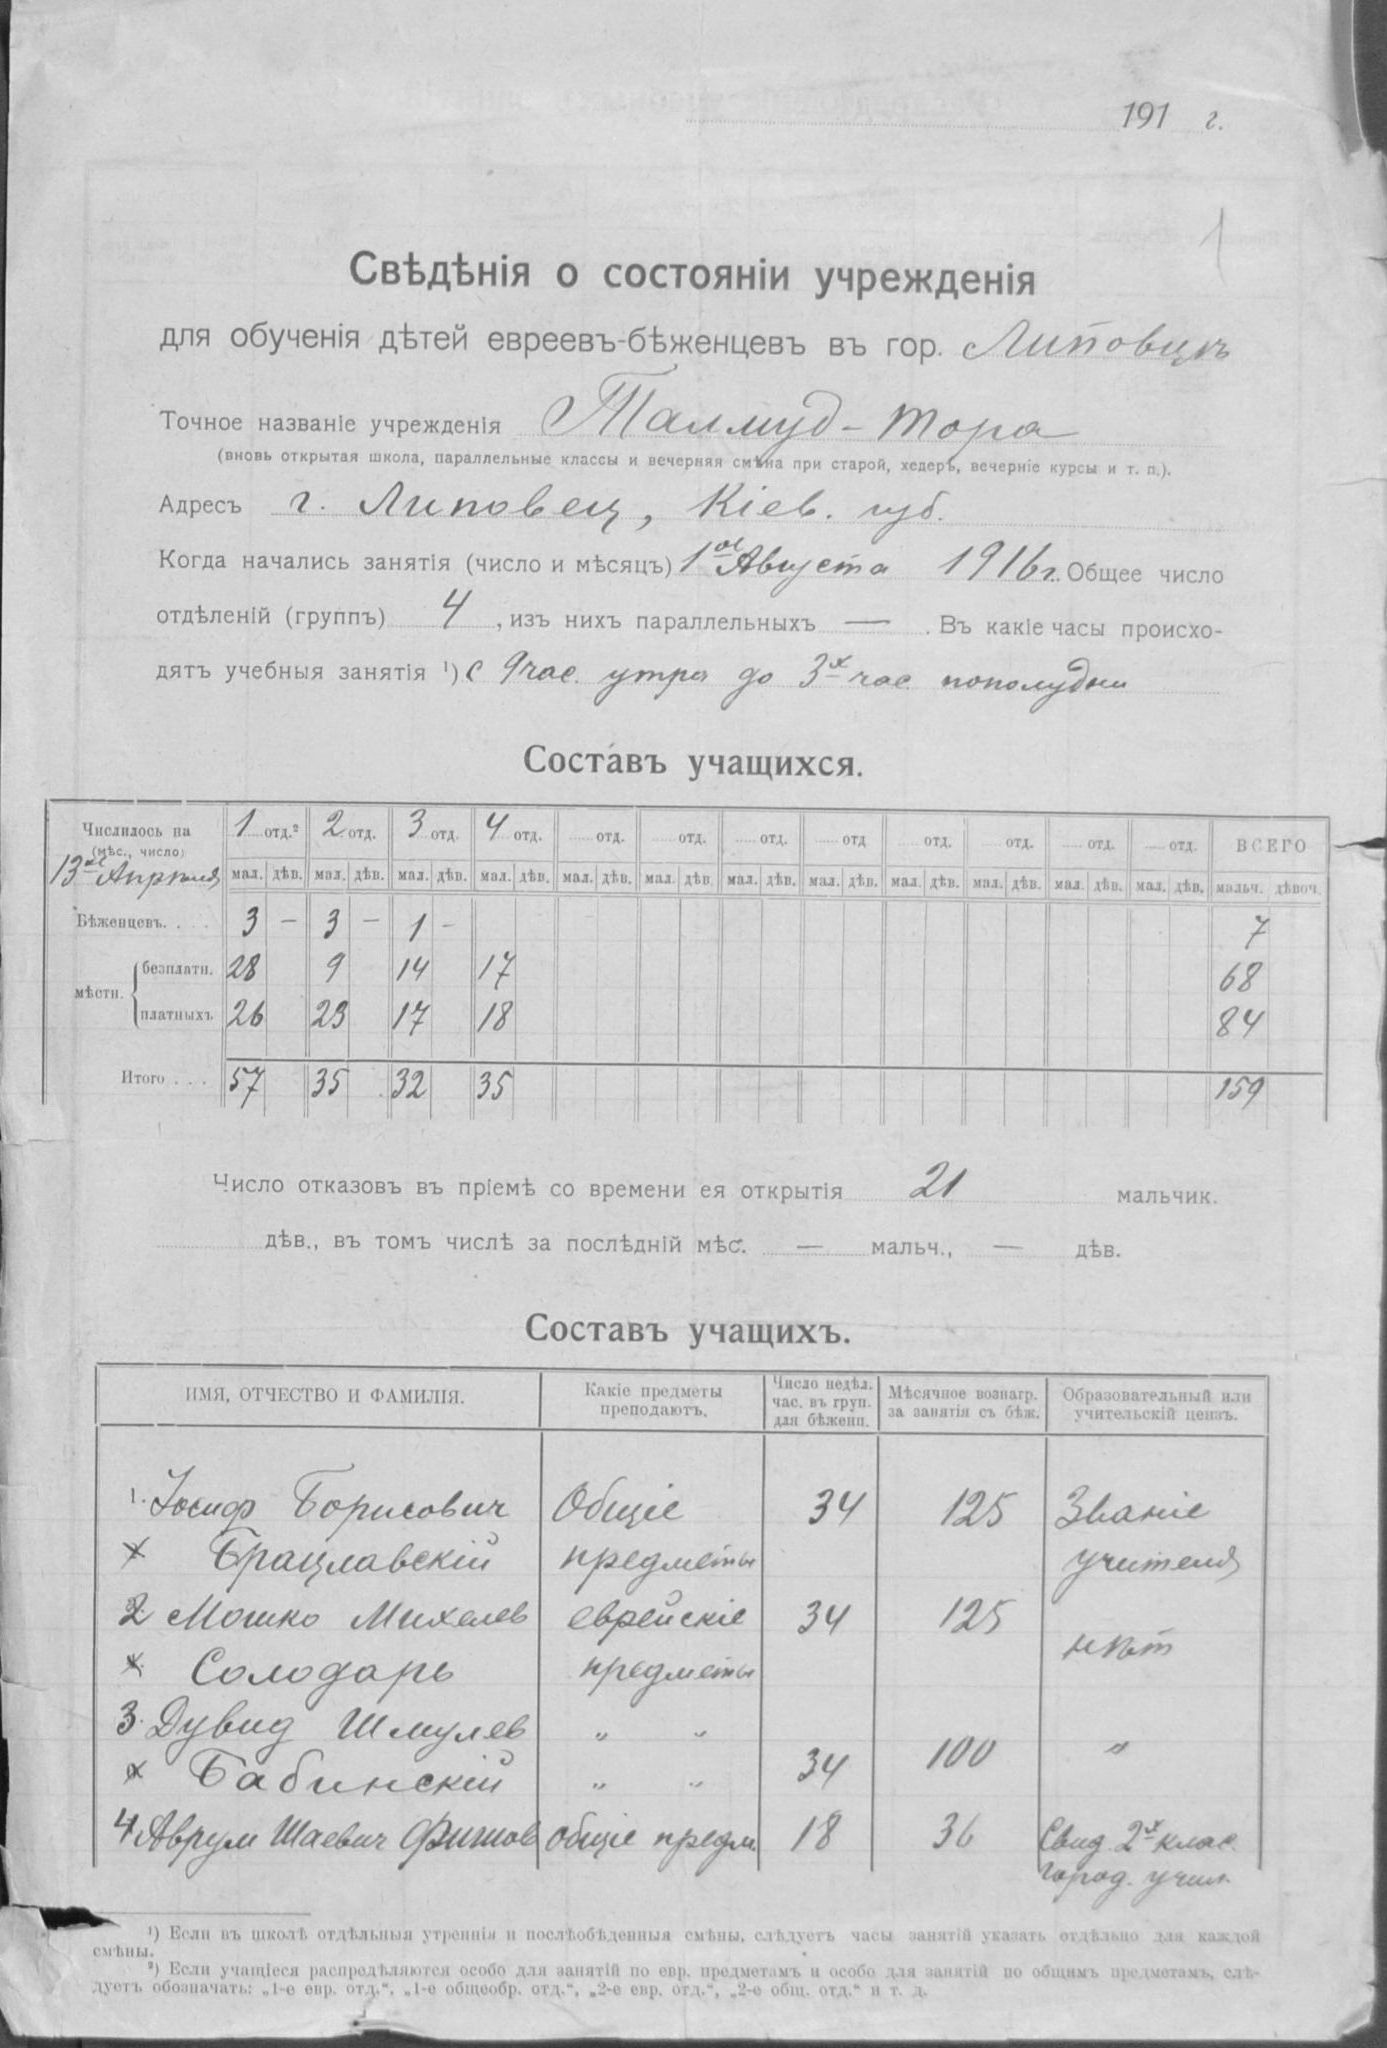 191 г.
1
Свѣдѣнія о состояніи учрежденія
для обученія дѣтей евреевъ-бѣженцевъ въ гор. Липовцѣ
Точное названіе учрежденія Талмуд-тора
(вновь открытая школа, параллельные классы и вечерняя смѣна при старой, хедеръ, вечерніе курсы и т. п.).
Адресъ г. Липовец, Кіев. губ.
Когда начались занятія (число и мѣсяцъ) 1ого Августа 1916 г. Общее число
отдѣленій (группъ) 4, изъ нихъ параллельныхъ — . Въ какіе часы происхо-
дятъ учебныя занятія ¹) с 9 час. утра до 3х час. пополудни
Составъ учащихся.
Числилось на 1 отд.² 2 отд. 3 отд. 4 отд. отд. отд. отд. отд отд. отд. отд. отд. ВСЕГО
(мѣс., число)
13ое Апрѣля мал. дѣв. мал. дѣв. мал. дѣв. мал. дѣв. мал. дѣв. мал. дѣв. мал. дѣв. мал. дѣв. мал. дѣв. мал. дѣв. мал. дѣв. мал. дѣв. мальч. дѣвоч.
Бѣженцевъ. . . 3 — 3 — 1 — 7
мѣстн. безплатн. 28 9 14 17 68
платныхъ 26 23 17 18 84
Итого . . . 57 35 32 35 159
Число отказовъ въ пріемѣ со времени ея открытія 21 мальчик.
дѣв., въ томъ числѣ за послѣдній мѣс. — мальч., — дѣв.
Составъ учащихъ.
ИМЯ, ОТЧЕСТВО И ФАМИЛІЯ. Какіе предметы преподаютъ. Число недѣл. час. въ груп. для бѣженц. Мѣсячное вознагр. за занятія съ бѣж. Образовательный или учительскій цензъ.
1. Іосиф Борисович Общіе 34 125 Званіе
х Брацлавскій предметы учителя
2 Мошко Михелев еврейскіе 34 125 нѣт
х Солодарь предметы
3. Дувид Шмулев " "
х Бабинскій " " 34 100 "
4 Аврум Шаевич Фишов общіе предм. 18 36 Свид. 2х клас.
город. учил.
¹) Если въ школѣ отдѣльныя утреннія и послѣобѣденныя смѣны, слѣдуетъ часы занятій указать отдѣльно для каждой
смѣны.
²) Если учащіеся распредѣляются особо для занятій по евр. предметамъ и особо для занятій по общимъ предметамъ, слѣ-
дуетъ обозначать: „1-е евр. отд.“, „1-е общеобр. отд.“, „2-е евр. отд.“, „2-е общ. отд.“ и т. д.